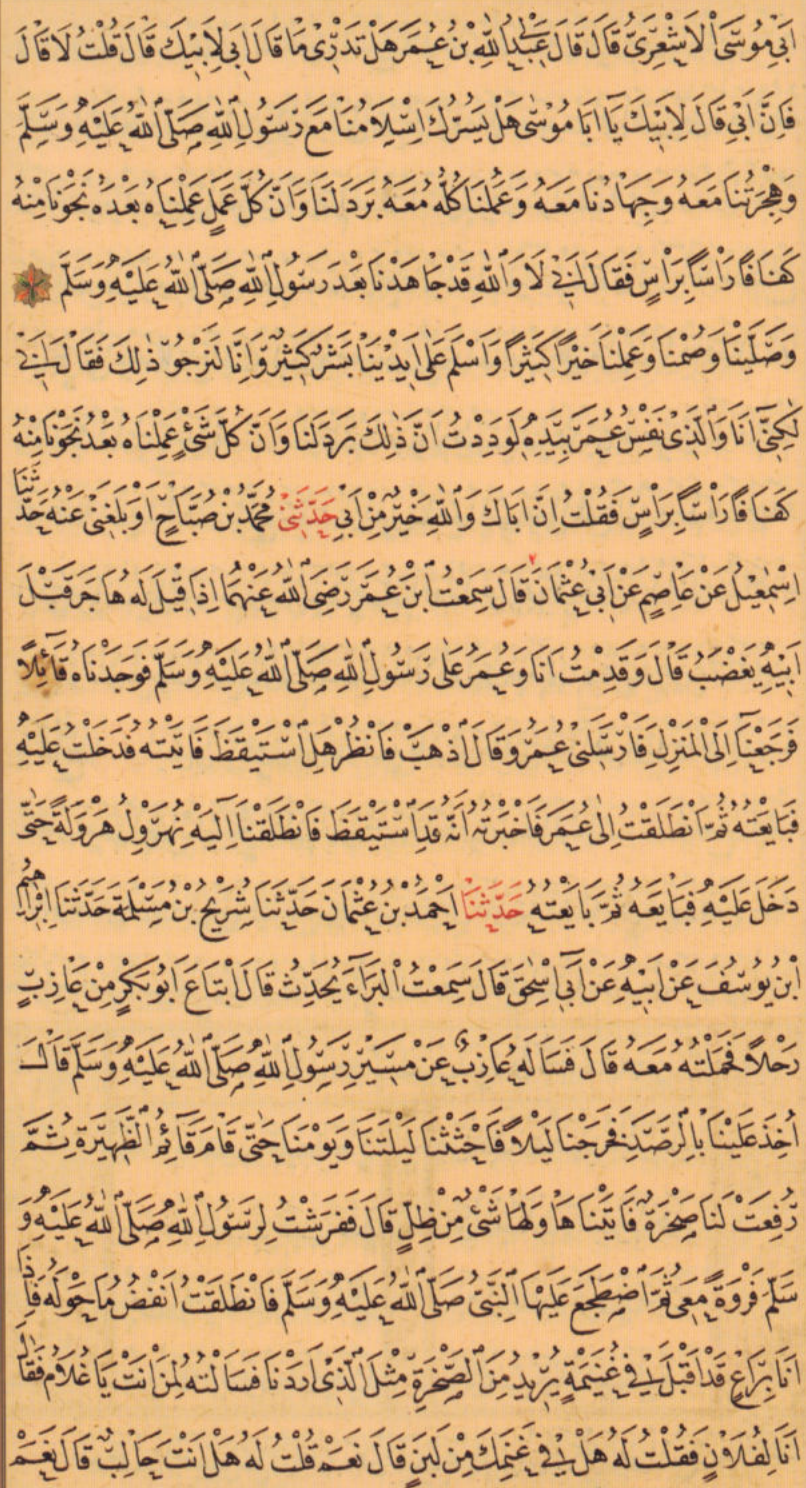 اَبِي مُوسَى الْاَشْعَرِيُّ قَالَ قَالَ عَبْدُ اللّٰهِ بْنُ عُمَرَ هَلْ تَدْرِي مَا قَالَ اَبِي لِاَبِيكَ قَالَ قُلْتُ لَا قَالَ
فَاِنَّ اَبِي قَالَ لِاَبِيكَ يَا اَبَا مُوسٰى هَلْ يَسُرُّكَ اِسْلَامُنَا مَعَ رَسُولِ اللّٰهِ صَلَّى اللّٰهُ عَلَيْهِ وَسَلَّمَ
وَهِجْرَتُنَا مَعَهُ وَجِهَادُنَا مَعَهُ وَعَمَلُنَا كُلُّهُ مَعَهُ بَرَدَ لَنَا وَاَنَّ كُلَّ عَمَلٍ عَمِلْنَاهُ بَعْدَهُ نَجَوْنَا مِنْهُ
كَفَافًا رَاْسًا بِرَاْسٍ فَقَالَ اَبِي لَا وَاللّٰهِ قَدْ جَاهَدْنَا بَعْدَ رَسُولِ اللّٰهِ صَلَّى اللّٰهُ عَلَيْهِ وَسَلَّمَ
وَصَلَّيْنَا وَصُمْنَا وَعَمِلْنَا خَيْرًا كَثِيرًا وَاَسْلَمَ عَلٰى اَيْدِينَا بَشَرٌ كَثِيرٌ وَاِنَّا لَنَرْجُو ذٰلِكَ فَقَالَ اَبِي
لٰكِنِّي اَنَا وَالَّذِي نَفْسُ عُمَرَ بِيَدِهِ لَوَدِدْتُ اَنَّ ذٰلِكَ بَرَدَ لَنَا وَاَنَّ كُلَّ شَيْءٍ عَمِلْنَاهُ بَعْدُ نَجَوْنَا مِنْهُ
كَفَافًا رَاْسًا بِرَاْسٍ فَقُلْتُ اِنَّ اَبَاكَ وَاللّٰهِ خَيْرٌ مِنْ اَبِي حَدَّثَنِي مُحَمَّدُ بْنُ صَبَّاحٍ اَوْ بَلَغَنِي عَنْهُ حَدَّثَنَا
اِسْمٰعِيلُ عَنْ عَاصِمٍ عَنْ اَبِي عُثْمَانَ قَالَ سَمِعْتُ ابْنَ عُمَرَ رَضِيَ اللّٰهُ عَنْهُمَا اِذَا قِيلَ لَهُ هَاجَرَ قَبْلَ
اَبِيهِ يَغْضَبُ قَالَ وَقَدِمْتُ اَنَا وَعُمَرُ عَلٰى رَسُولِ اللّٰهِ صَلَّى اللّٰهُ عَلَيْهِ وَسَلَّمَ فَوَجَدْنَاهُ قَائِلًا
فَرَجَعْنَا اِلَى الْمَنْزِلِ فَاَرْسَلَنِي عُمَرُ وَقَالَ اذْهَبْ فَانْظُرْ هَلِ اسْتَيْقَظَ فَاَتَيْتُهُ فَدَخَلْتُ عَلَيْهِ
فَبَايَعْتُهُ ثُمَّ انْطَلَقْتُ اِلٰى عُمَرَ فَاَخْبَرْتُهُ اَنَّهُ قَدِ اسْتَيْقَظَ فَانْطَلَقْنَا اِلَيْهِ نُهَرْوِلُ هَرْوَلَةً حَتّٰى
دَخَلَ عَلَيْهِ فَبَايَعَهُ ثُمَّ بَايَعْتُهُ حَدَّثَنَا اَحْمَدُ بْنُ عُثْمَانَ حَدَّثَنَا شُرَيْحُ بْنُ مَسْلَمَةَ حَدَّثَنَا اِبْرَاهِيمُ
ابْنُ يُوسُفَ عَنْ اَبِيهِ عَنْ اَبِي اِسْحٰقَ قَالَ سَمِعْتُ الْبَرَاءَ يُحَدِّثُ قَالَ ابْتَاعَ اَبُو بَكْرٍ مِنْ عَازِبٍ
رَحْلًا فَحَمَلْتُهُ مَعَهُ قَالَ فَسَاَلَهُ عَازِبٌ عَنْ مَسِيرِ رَسُولِ اللّٰهِ صَلَّى اللّٰهُ عَلَيْهِ وَسَلَّمَ قَالَ
اُخِذَ عَلَيْنَا بِالرَّصَدِ فَخَرَجْنَا لَيْلًا فَاَحْثَثْنَا لَيْلَتَنَا وَيَوْمَنَا حَتّٰى قَامَ قَائِمُ الظَّهِيرَةِ ثُمَّ
رُفِعَتْ لَنَا صَخْرَةٌ فَاَتَيْنَاهَا وَلَهَا شَيْءٌ مِنْ ظِلٍّ قَالَ فَفَرَشْتُ لِرَسُولِ اللّٰهِ صَلَّى اللّٰهُ عَلَيْهِ وَ
سَلَّمَ فَرْوَةً مَعِي ثُمَّ اضْطَجَعَ عَلَيْهَا النَّبِيُّ صَلَّى اللّٰهُ عَلَيْهِ وَسَلَّمَ فَانْطَلَقْتُ اَنْفُضُ مَا حَوْلَهُ فَاِذَا
اَنَا بِرَاعٍ قَدْ اَقْبَلَ فِي غُنَيْمَةٍ يُرِيدُ مِنَ الصَّخْرَةِ مِثْلَ الَّذِي اَرَدْنَا فَسَاَلْتُهُ لِمَنْ اَنْتَ يَا غُلَامُ فَقَالَ
اَنَا لِفُلَانٍ فَقُلْتُ لَهُ هَلْ فِي غَنَمِكَ مِنْ لَبَنٍ قَالَ نَعَمْ قُلْتُ لَهُ هَلْ اَنْتَ حَالِبٌ قَالَ نَعَمْ